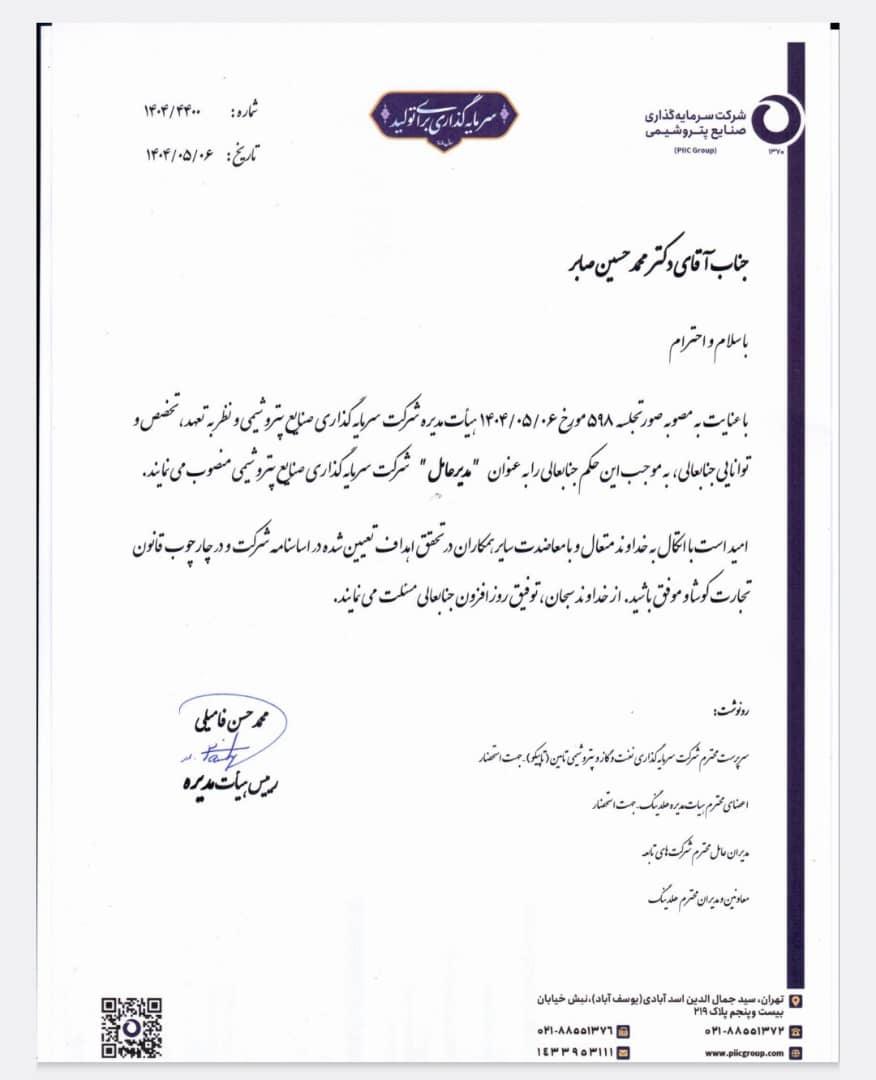 شرکت سرمایه‌گذاری
صنایع پتروشیمی
(PIIC Group)
۱۳۷۰
سرمایه‌گذاری برای تولید
شماره: ۱۴۰۴/۴۴۰۰
تاریخ: ۱۴۰۴/۰۵/۰۶
جناب آقای دکتر محمد حسین صابر
با سلام و احترام
با عنایت به مصوبه صورتجلسه ۵۹۸ مورخ ۱۴۰۴/۰۵/۰۶ هیأت مدیره شرکت سرمایه گذاری صنایع پتروشیمی و نظر به تعهد، تخصص و
توانایی جنابعالی، به موجب این حکم جنابعالی را به عنوان "مدیرعامل" شرکت سرمایه گذاری صنایع پتروشیمی منصوب می نمایند.
امید است با اتکال به خداوند متعال و با معاضدت سایر همکاران در تحقق اهداف تعیین شده در اساسنامه شرکت و در چارچوب قانون
تجارت کوشا و موفق باشید. از خداوند سبحان، توفیق روز افزون جنابعالی مسئلت می نمایند.
محمد حسن فامیلی
رییس هیأت مدیره
رونوشت:
سرپرست محترم شرکت سرمایه گذاری نفت و گاز و پتروشیمی تامین (تاپیکو)-جهت استحضار
اعضای محترم هیات مدیره هلدینگ-جهت استحضار
مدیران عامل محترم شرکت های تابعه
معاونین و مدیران محترم هلدینگ
تهران، سید جمال الدین اسد آبادی (یوسف آباد)، نبش خیابان
بیست و پنجم پلاک ۲۱۹
۰۲۱-۸۸۵۵۱۳۷۲
۰۲۱-۸۸۵۵۱۳۷۶
www.piicgroup.com
۱۴۳۳۹۵۳۱۱۱